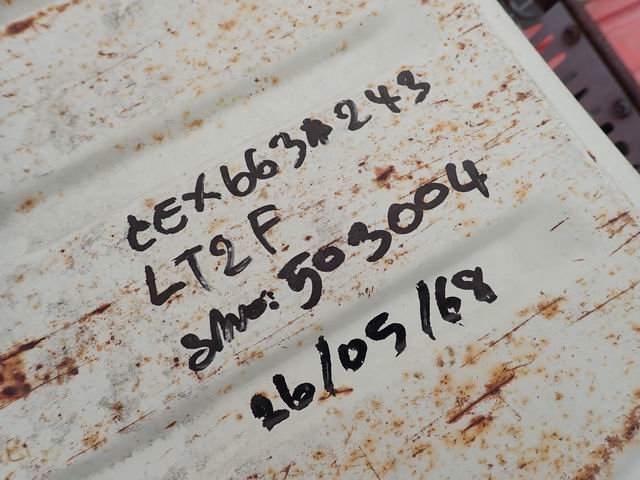 CEX663A243
LT2F
S/NO: 503004
26/05/68